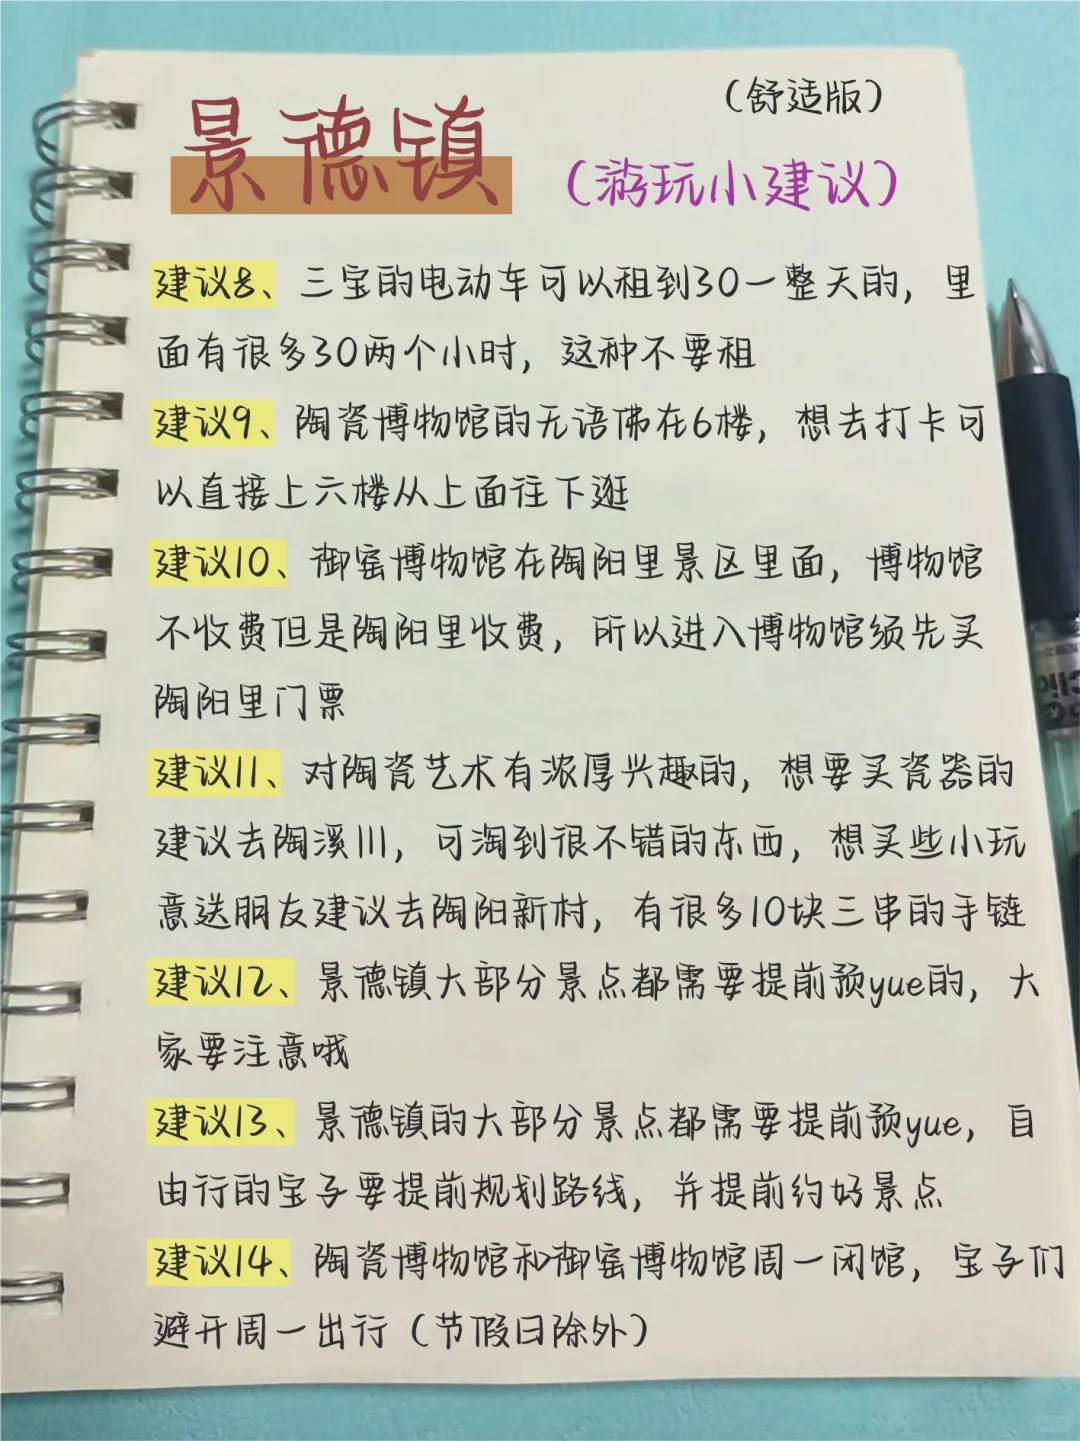 （舒适版）
景德镇
（游玩小建议）
建议8、三宝的电动车可以租到30一整天的，里
面有很多30两个小时，这种不要租
建议9、陶瓷博物馆的无语佛在6楼，想去打卡可
以直接上六楼从上面往下逛
建议10、御窑博物馆在陶阳里景区里面，博物馆
不收费但是陶阳里收费，所以进入博物馆须先买
陶阳里门票
建议11、对陶瓷艺术有浓厚兴趣的，想要买瓷器的
建议去陶溪川，可淘到很不错的东西，想买些小玩
意送朋友建议去陶阳新村，有很多10块三串的手链
建议12、景德镇大部分景点都需要提前预yue的，大
家要注意哦
建议13、景德镇的大部分景点都需要提前预yue，自
由行的宝子要提前规划路线，并提前约好景点
建议14、陶瓷博物馆和御窑博物馆周一闭馆，宝子们
避开周一出行（节假日除外）